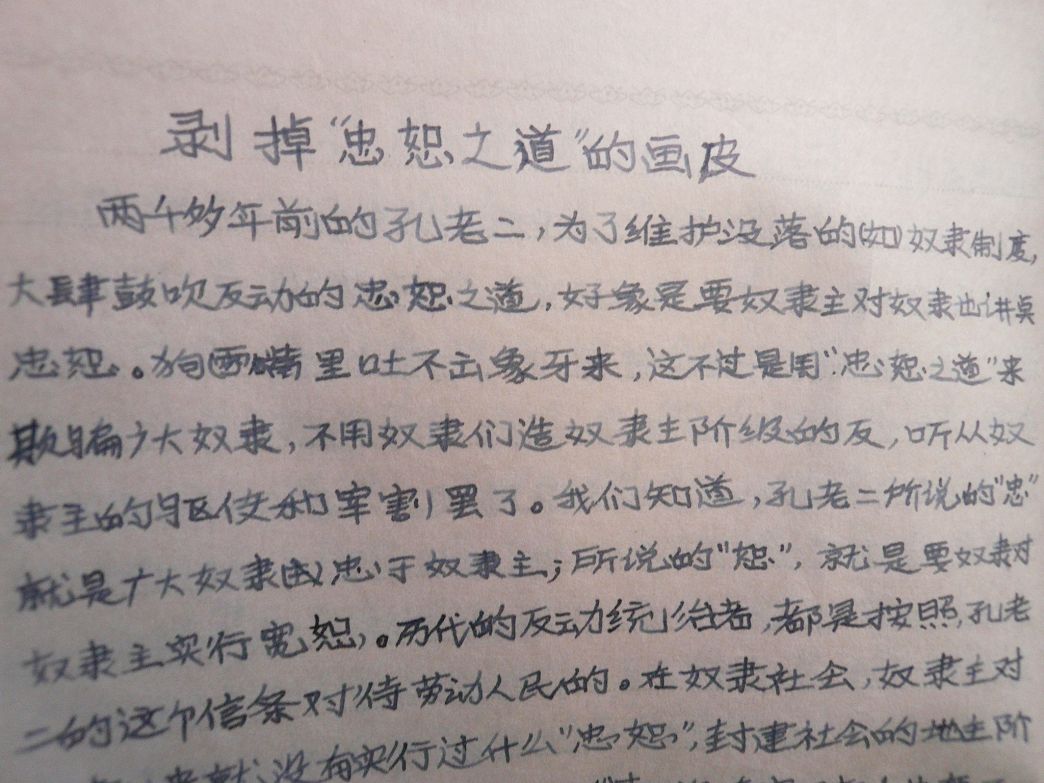 剥掉“忠恕之道”的画皮
两千多年前的孔老二，为了维护没落的(如)奴隶制度，
大肆鼓吹反动的忠恕之道，好象是要奴隶主对奴隶也讲真
忠恕。狗嘴里吐不出象牙来，这不过是用“忠恕之道”来
欺骗广大奴隶，不用奴隶们造奴隶主阶级的反，听从奴
隶主的驱使和宰割罢了。我们知道，孔老二所说的“忠”
就是广大奴隶忠于奴隶主；所说的“恕”，就是要奴隶对
奴隶主实行宽恕。历代的反动统治者，都是按照孔老
二的这个信条对待劳动人民的。在奴隶社会，奴隶主对
来就没有实行过什么“忠恕”，封建社会的地主阶